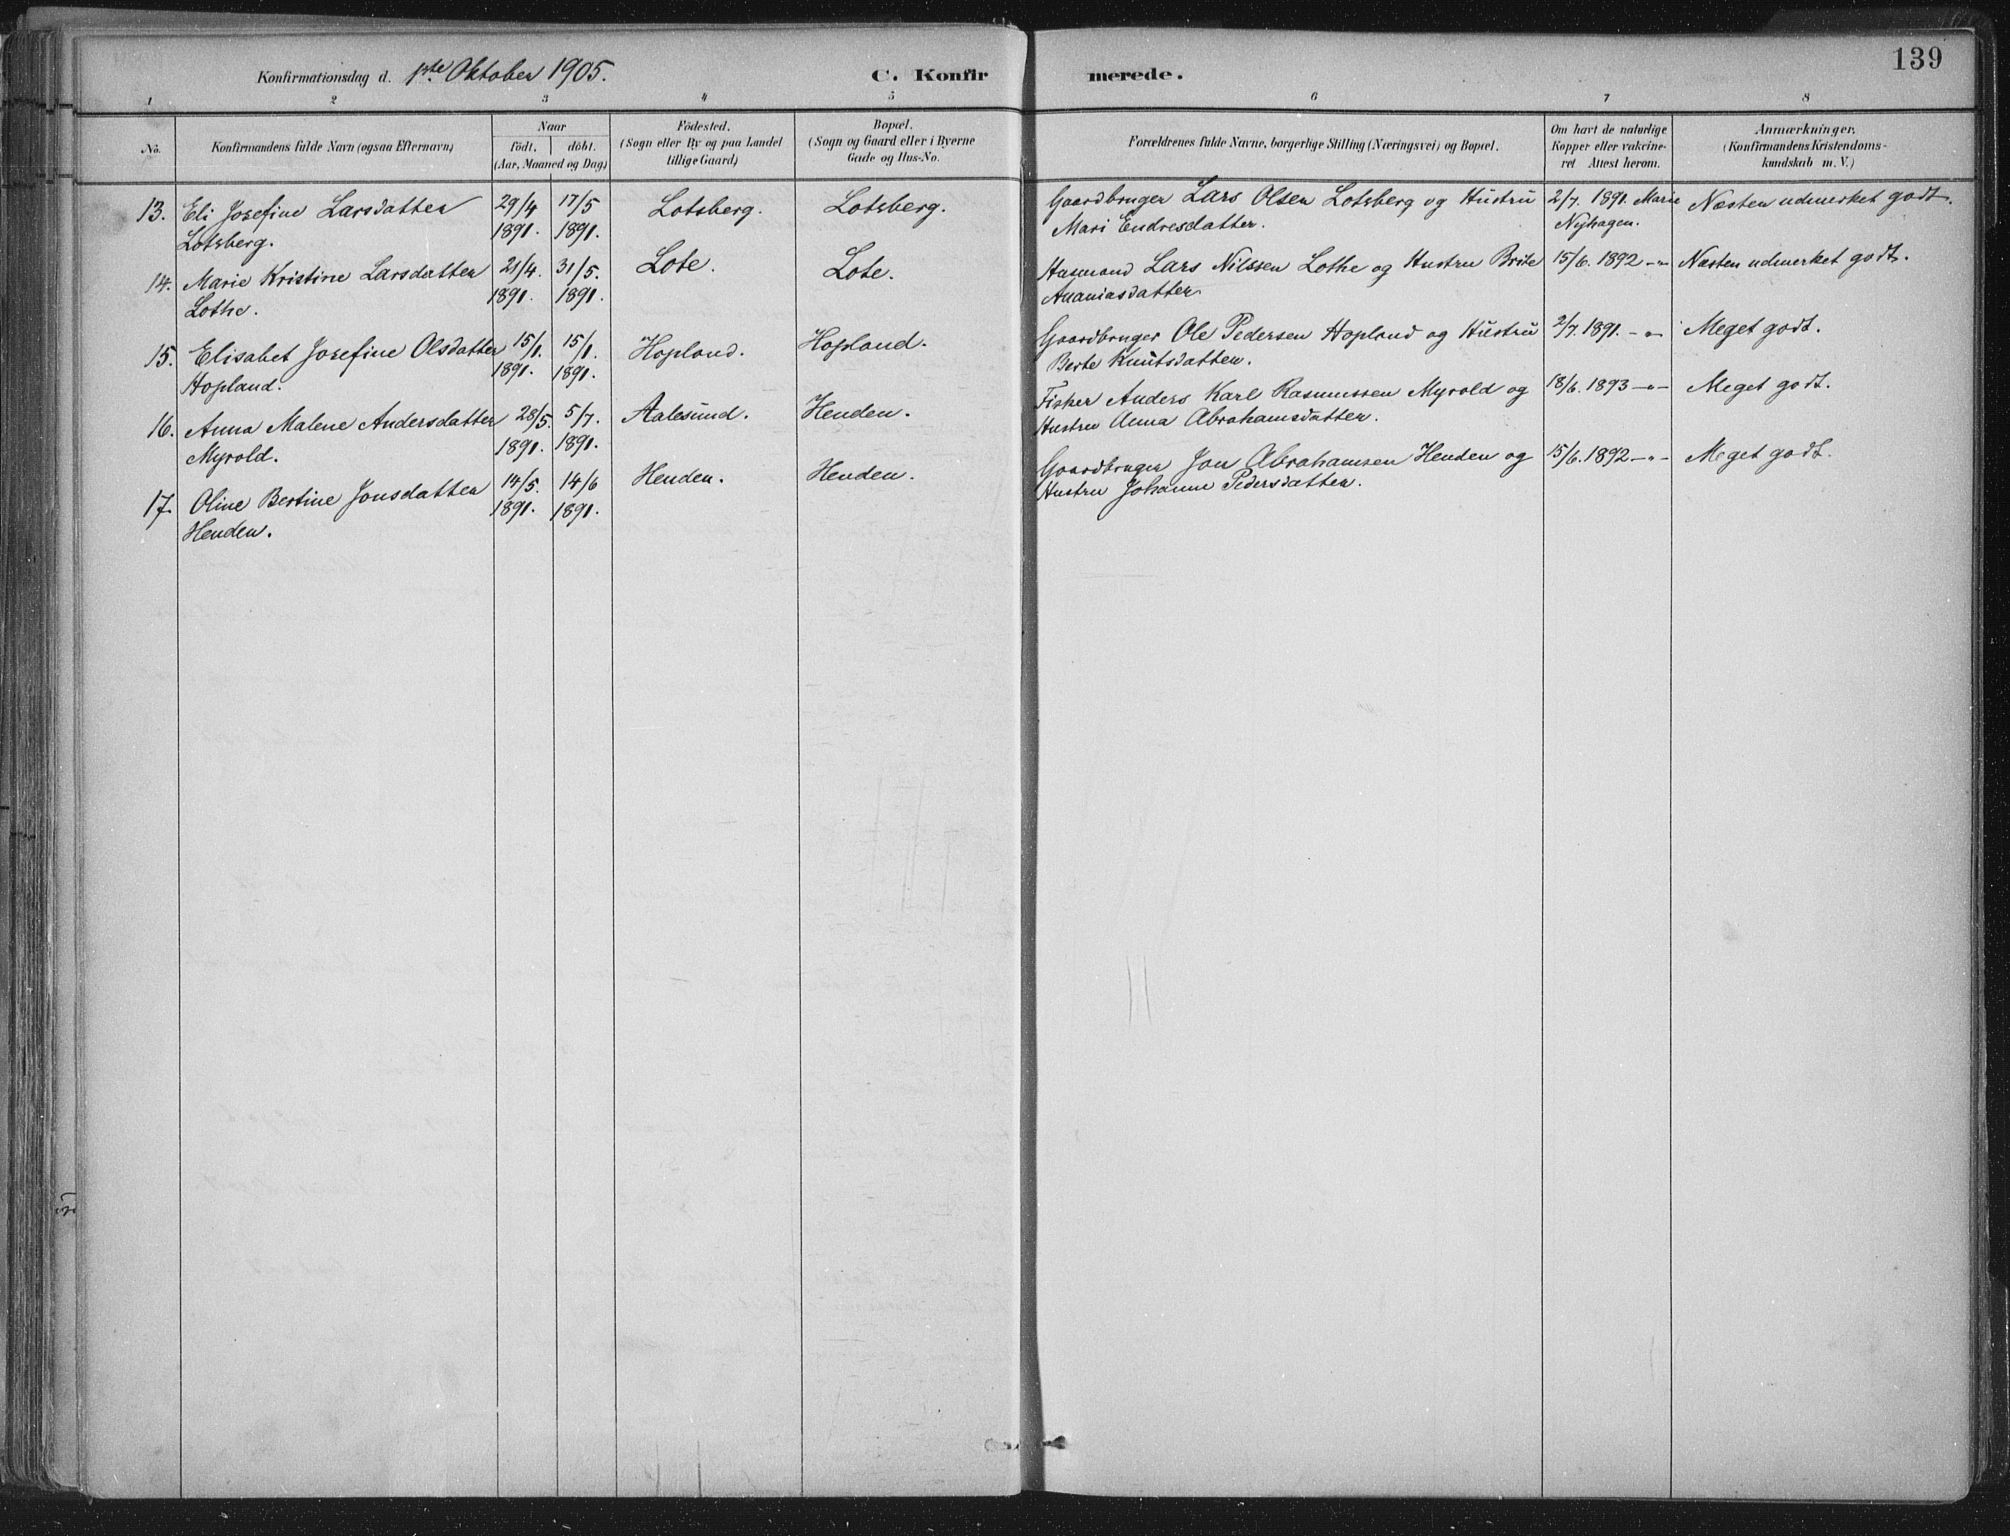 139
Konfirmationsdag d. 1ste Oktober 1905.
C. Konfirmerede.
1 2 3 4 5 6 7 8
No.
Konfirmandens fulde Navn (ogsaa Efternavn)
Naar
födt. döbt.
(Aar, Maaned og Dag)
Födested.
(Sogn eller By og paa Landet
tillige Gaard)
Bopæl.
(Sogn og Gaard eller i Byerne
Gade og Hus-No.
Forældrenes fulde Navne, borgerlige Stilling (Næringsvei) og Bopæl.
Om havt de naturlige
Kopper eller vakcine-
ret Attest herom.
Anmærkninger.
(Konfirmandens Kristendoms-
kundskab m. V.)
13. Eli Josefine Larsdatter 29/4 17/5 Lotsberg. Lotsberg. Gaardbruger Lars Olsen Lotsberg og Hustru 2/7. 1891. Marie Næsten udmerket godt.
Lotsberg. 1891. 1891. Mari Endresdatter. Nyhagen.
14. Marie Kristine Larsdatter 21/4. 31/5. Lote. Lote. Husmand Lars Nilssen Lothe og Hustru Brite 15/6. 1892 -"- Næsten udmerket godt.
Lothe. 1891. 1891. Ananiasdatter
15. Elisabet Josefine Olsdatter 15/1. 15/1. Hopland. Hopland. Gaardbruger Ole Pedersen Hopland og Hustru 2/7. 1891. -"- Meget godt.
Hopland. 1891. 1891. Berte Knutsdatter.
16. Anna Malene Andersdatter 28/5. 5/7. Aalesund. Henden. Fisker Anders Karl Rasmussen Myrold og 18/6. 1893 -"- Meget godt.
Myrold. 1891. 1891. Hustru Anna Abrahamsdatter.
17. Oline Bertine Jonsdatter 14/5. 14/6 Henden. Henden. Gaardbruger Jon Abrahamsen Henden og 15/6. 1892 -"- Meget godt.
Henden. 1891. 1891. Hustru Johanne Pedersdatter.